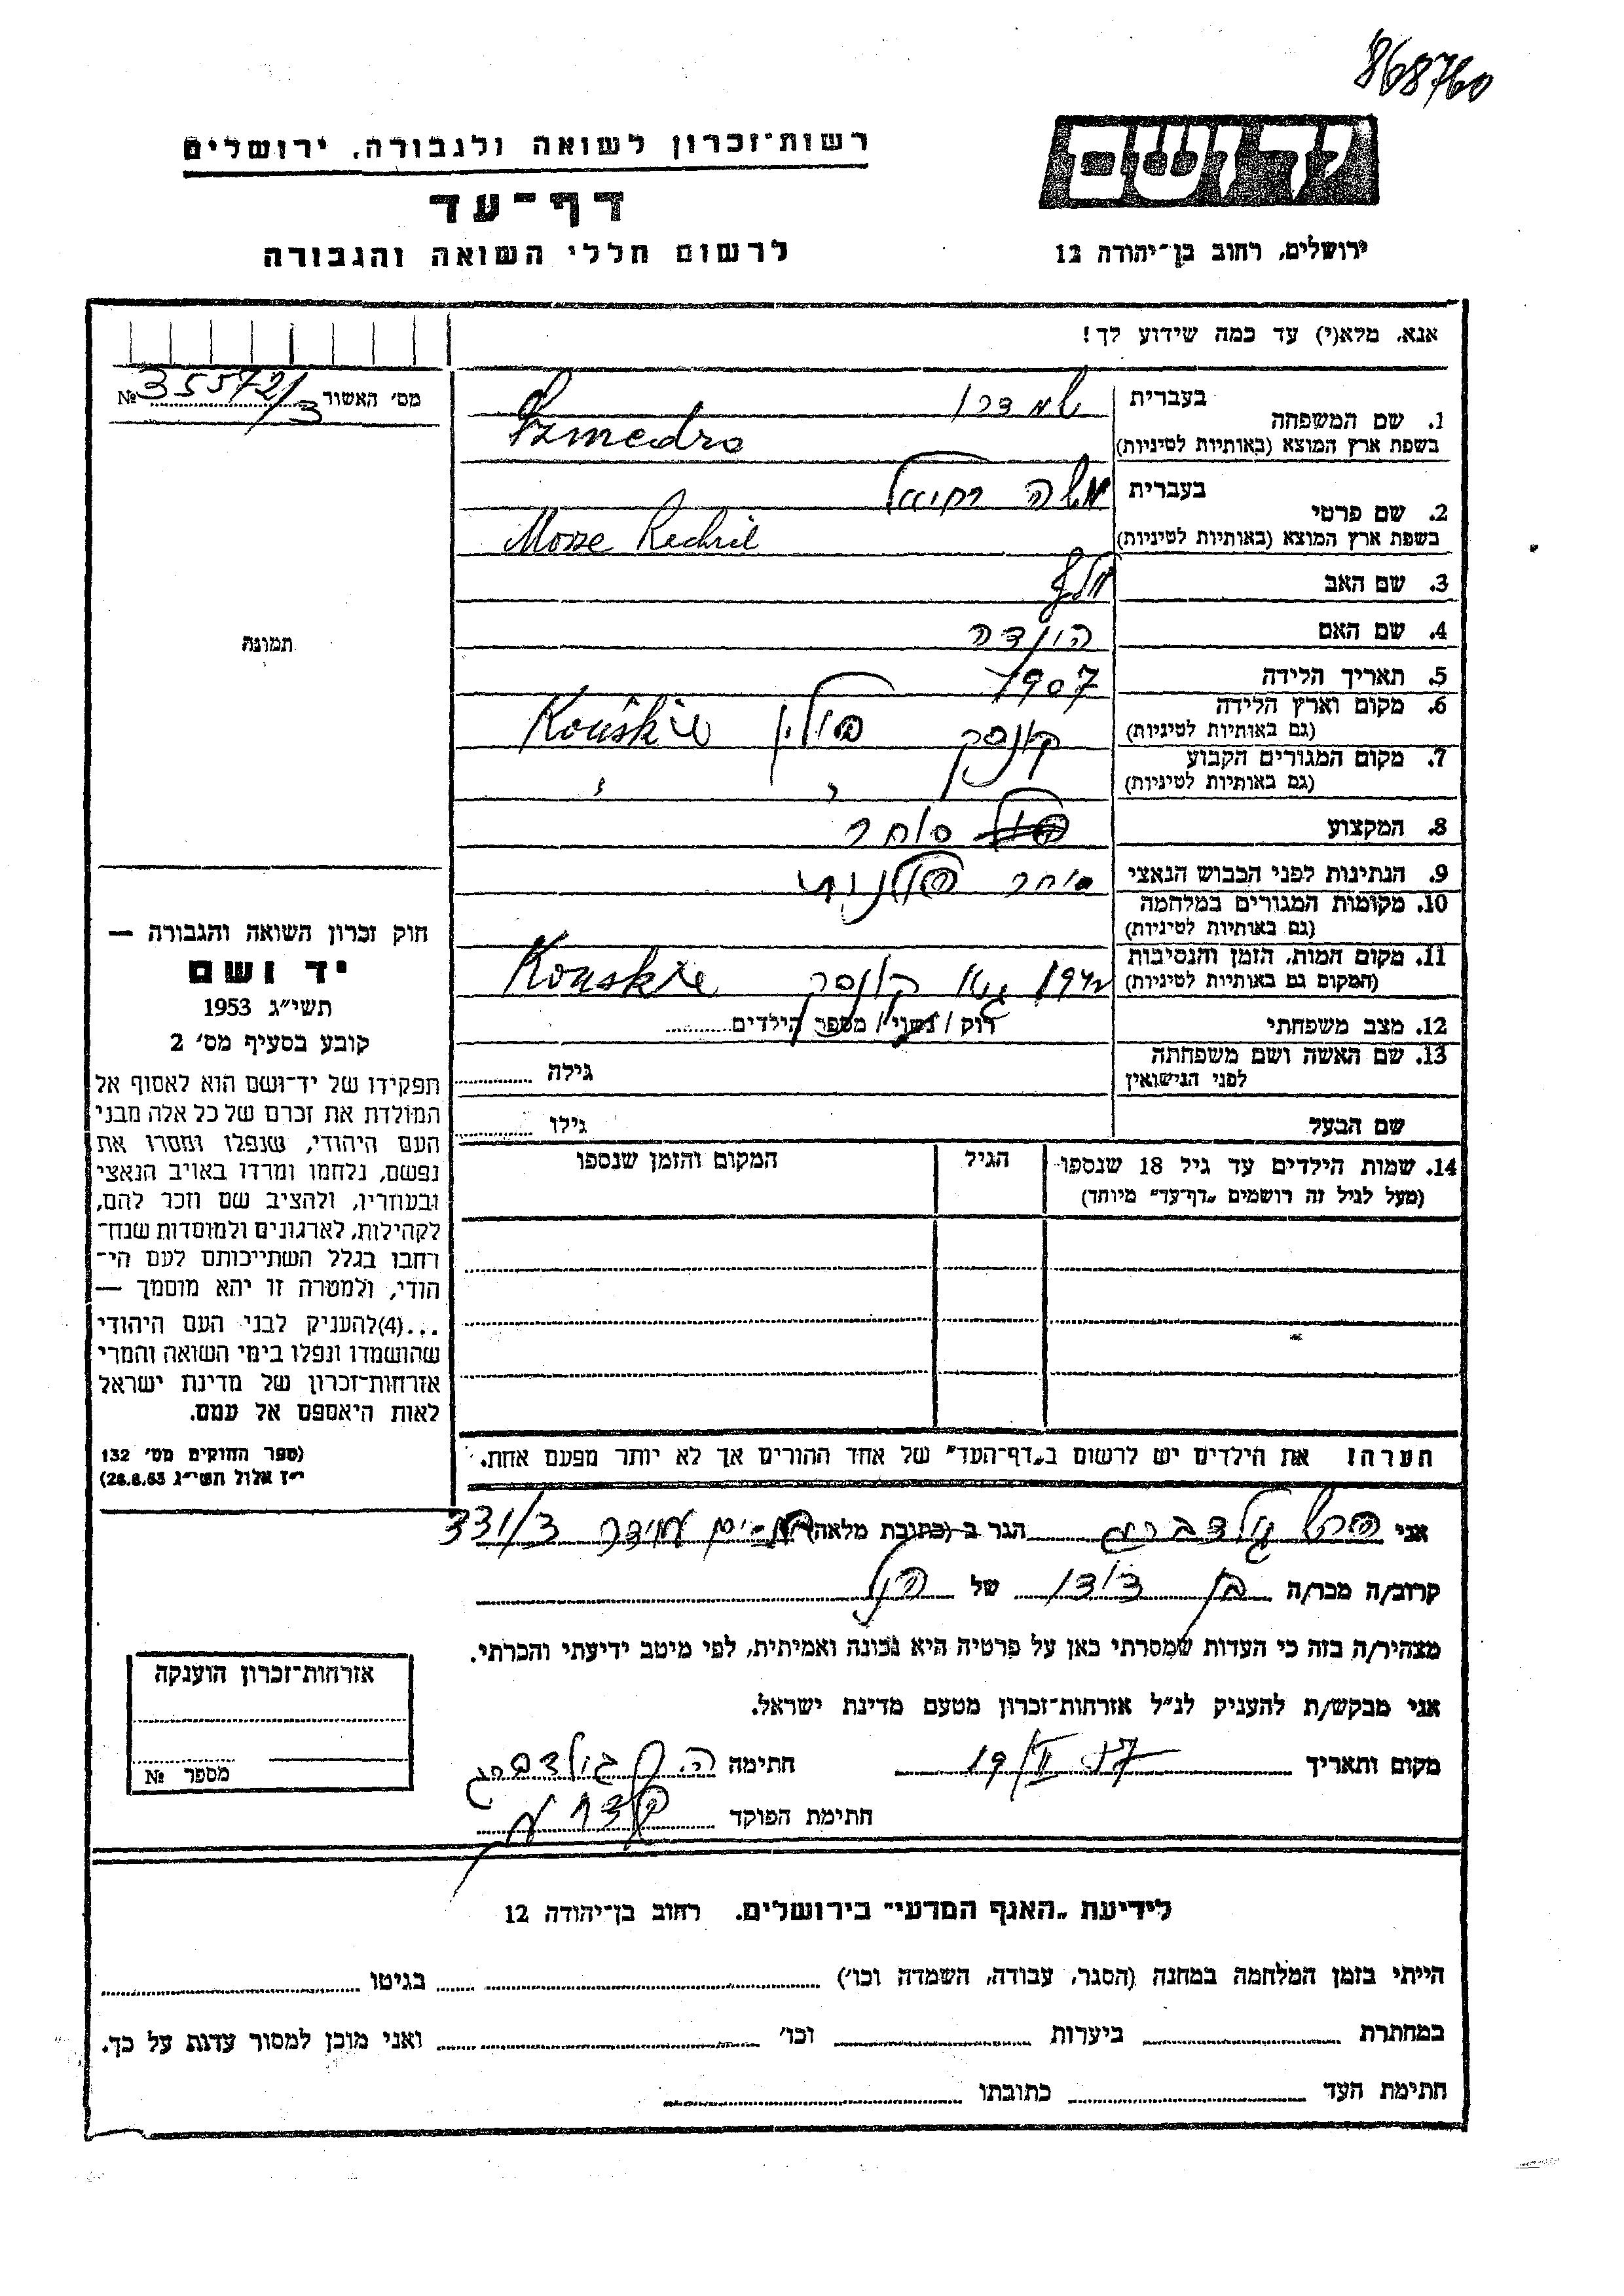 868760
יד ושם
רשות־זכרון לשואה ולגבורה, ירושלים
דף־עד
לרשום חללי השואה והגבורה
ירושלים, רחוב בן־יהודה 12
אנא, מלא(י) עד כמה שידוע לך!
מס׳ האשור № 35572/3
תמונה
1. שם המשפחה
בעברית
בשפת ארץ המוצא (באותיות לטיניות) Szmedra
2. שם פרטי
בעברית משה
בשפת ארץ המוצא (באותיות לטיניות) Mosze Rechmil
3. שם האב
4. שם האם הינדה
5. תאריך הלידה 1907
6. מקום וארץ הלידה קונסק פולין Końskie
(גם באותיות לטיניות)
7. מקום המגורים הקבוע
(גם באותיות לטיניות) " "
8. המקצוע סוחר
9. הנתינות לפני הכבוש הנאצי סוחר פולנית
10. מקומות המגורים במלחמה
(גם באותיות לטיניות)
11. מקום המות, הזמן והנסיבות 1942 גטו קונסק Konskie
(המקום גם באותיות לטיניות)
12. מצב משפחתי רוק / נשוי / מספר הילדים
13. שם האשה ושם משפחתה
לפני הנישואין
גילה
שם הבעל גילו
14. שמות הילדים עד גיל 18 שנספו הגיל המקום והזמן שנספו
(מעל לגיל זה רושמים „דף־עד״ מיוחד)
הערה! את הילדים יש לרשום ב„דף־העד״ של אחד ההורים אך לא יותר מפעם אחת.
חוק זכרון השואה והגבורה —
יד ושם
תשי״ג 1953
קובע בסעיף מס׳ 2
תפקידו של יד־ושם הוא לאסוף אל
המולדת את זכרם של כל אלה מבני
העם היהודי, שנפלו ומסרו את
נפשם, נלחמו ומרדו באויב הנאצי
ובעוזריו, ולהציב שם וזכר להם,
לקהילות, לארגונים ולמוסדות שנח־
רבו בגלל השתייכותם לעם הי־
הודי, ולמטרה זו יהא מוסמך —
...(4) להעניק לבני העם היהודי
שהושמדו ונפלו בימי השואה והמרי
אזרחות־זכרון של מדינת ישראל
לאות היאספם אל עמם.
(ספר החוקים מס׳ 132
י״ז אלול תשי״ג 28.8.53)
אני הרש גולדברג הגר ב (כתובת מלאה) 331/3
קרוב/ה מכר/ה בן דודו של הנ״ל
מצהיר/ה בזה כי העדות שמסרתי כאן על פרטיה היא נכונה ואמיתית, לפי מיטב ידיעתי והכרתי.
אני מבקש/ת להעניק לנ״ל אזרחות־זכרון מטעם מדינת ישראל.
מקום ותאריך 19/II 57 חתימה ה. גולדברג
חתימת הפוקד
אזרחות־זכרון הוענקה
מספר №
לידיעת „האגף המדעי״ בירושלים, רחוב בן־יהודה 12
הייתי בזמן המלחמה במחנה (הסגר, עבודה, השמדה וכו׳) בגיטו
במחתרת ביערות וכו׳ ואני מוכן למסור עדות על כך.
חתימת העד כתובתו